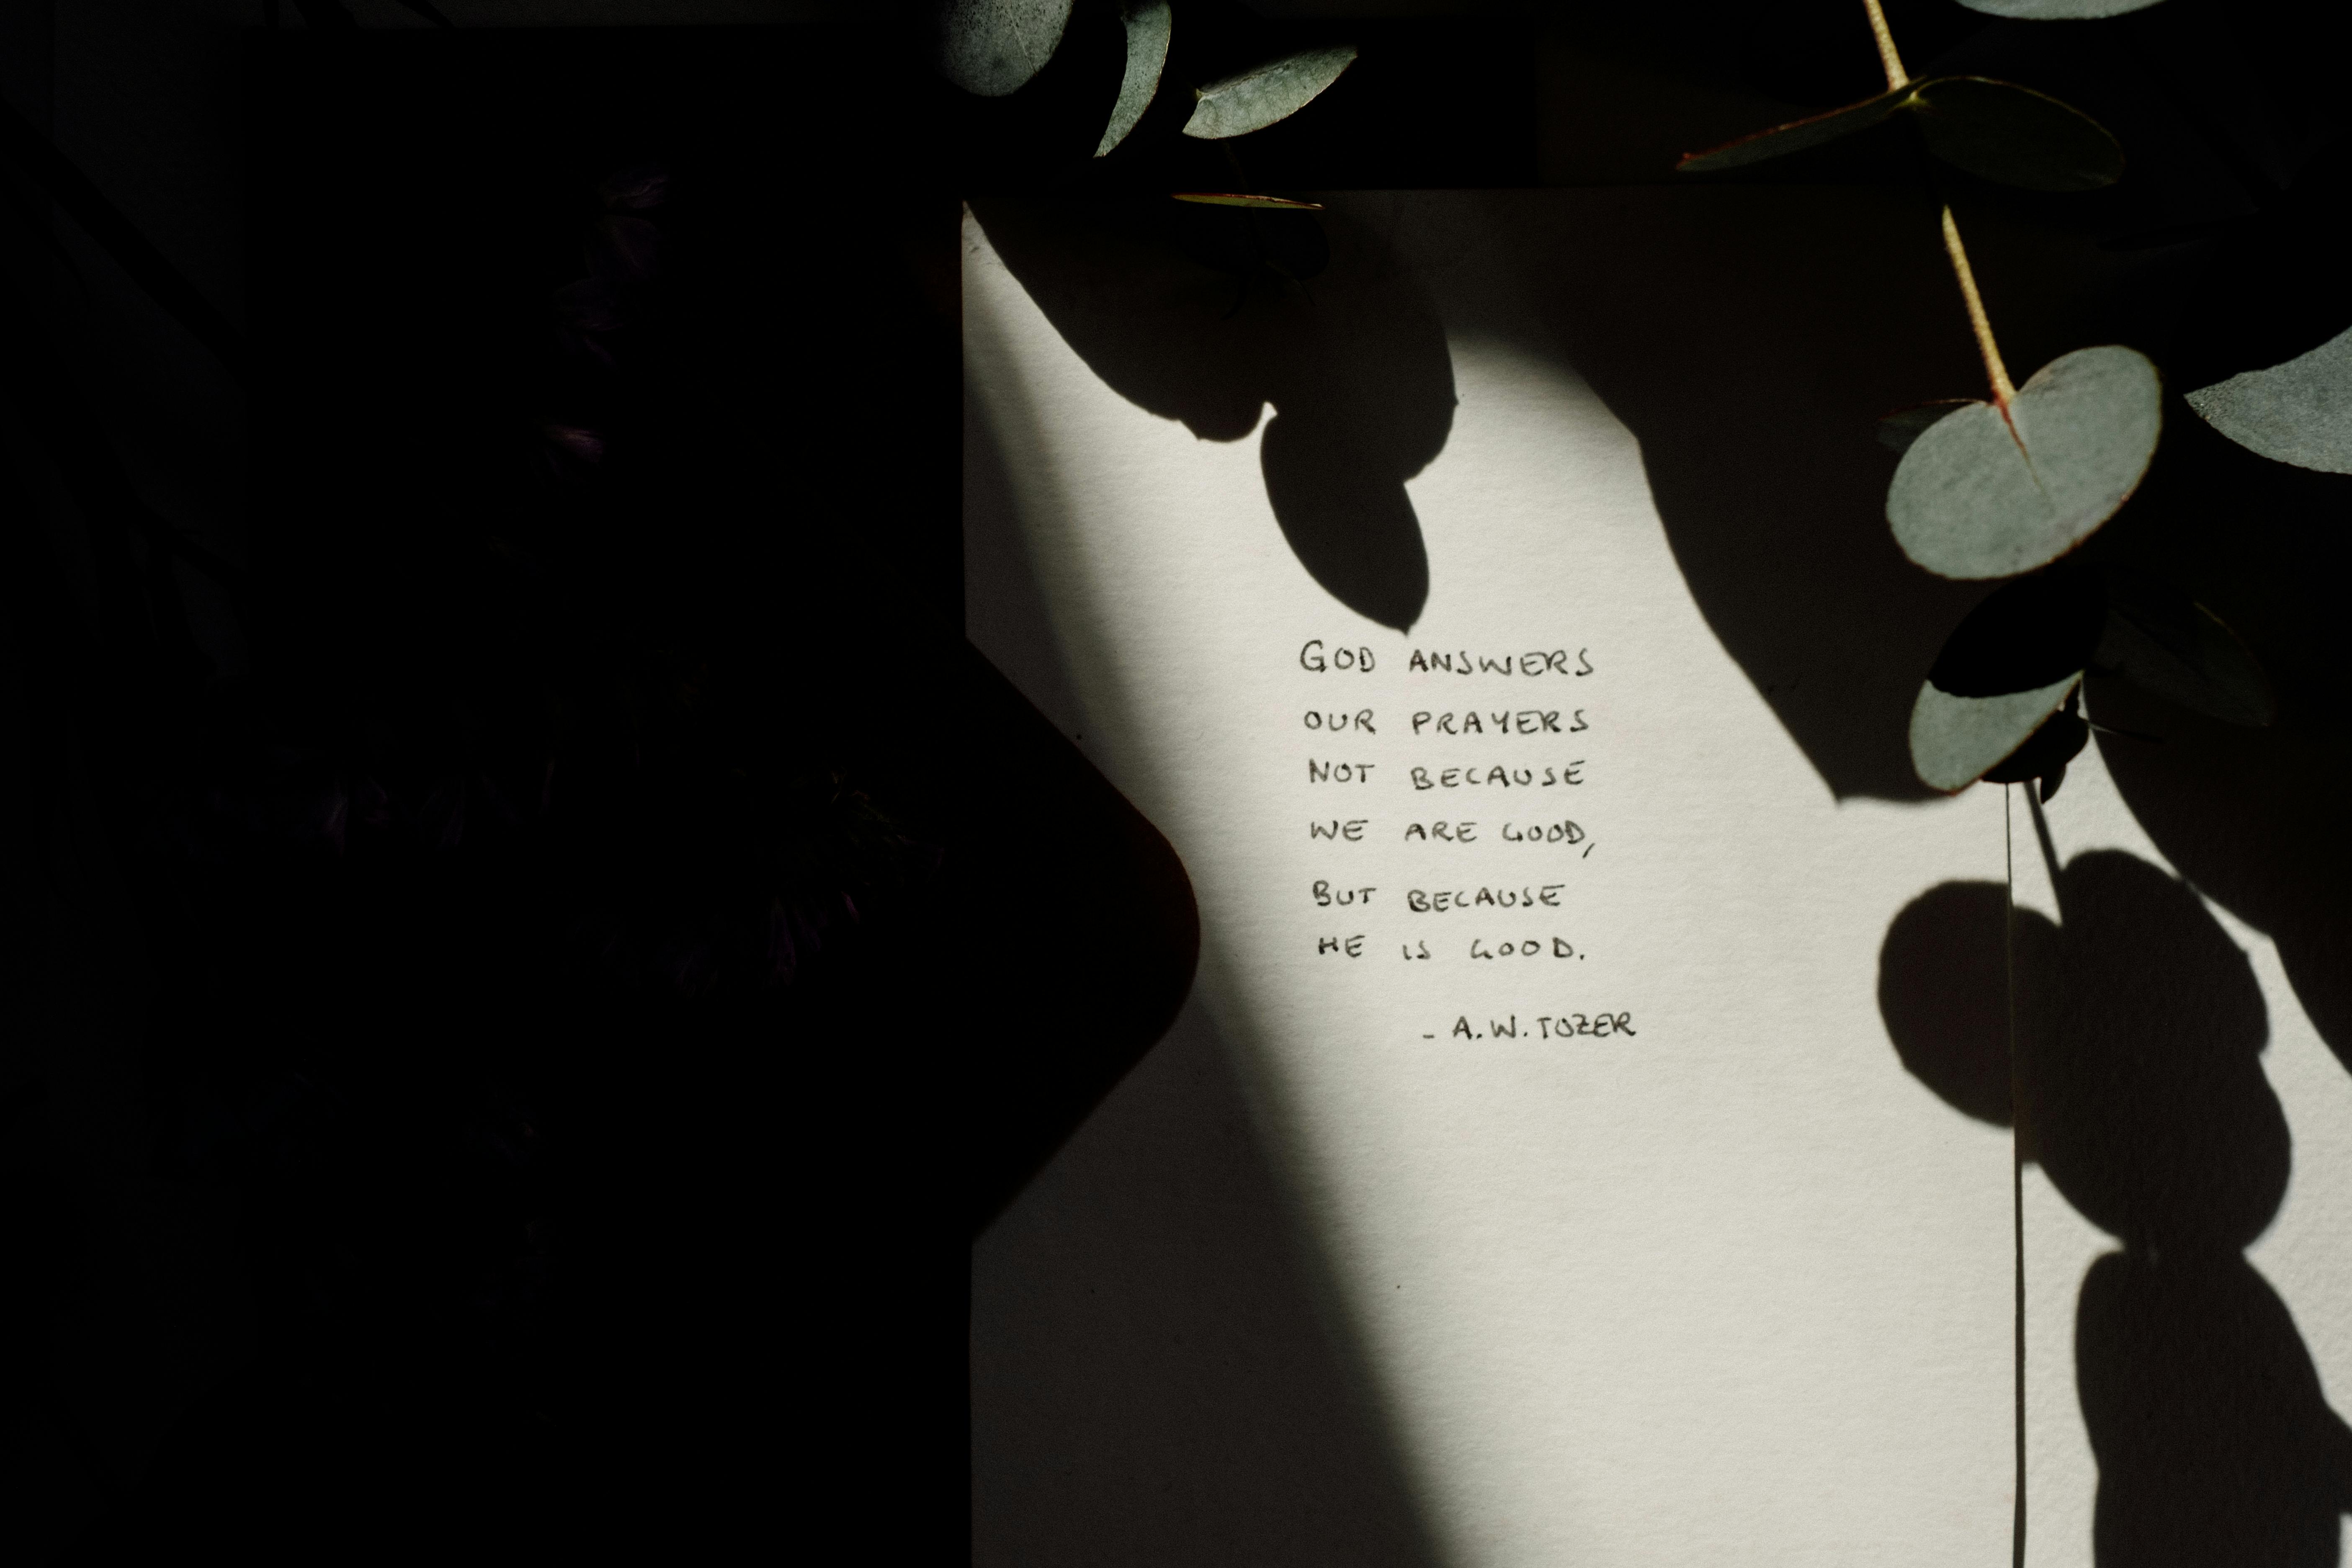 GOD ANSWERS
OUR PRAYERS
NOT BECAUSE
WE ARE GOOD,
BUT BECAUSE
HE IS GOOD.
- A.W. TOZER